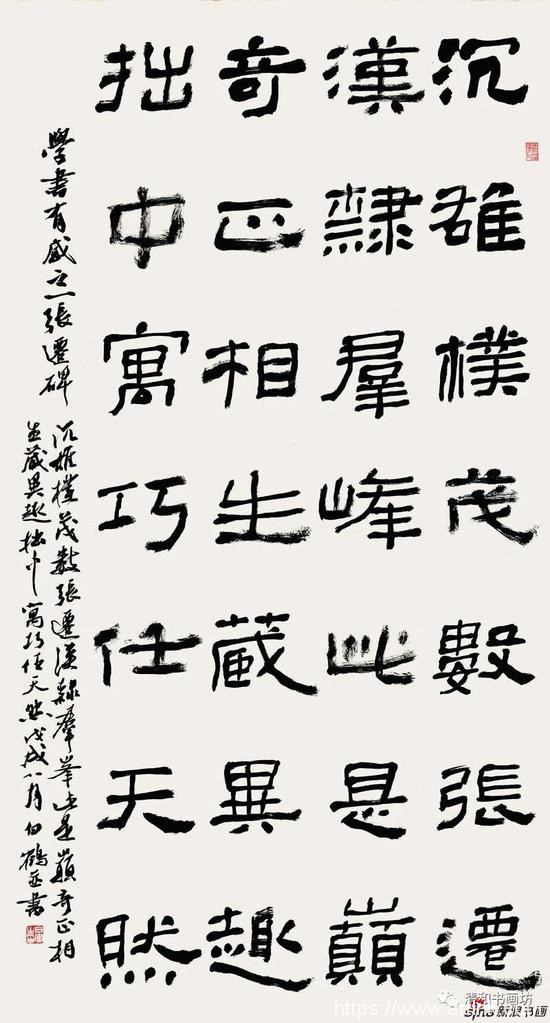 沉雄樸茂數張遷
漢隸羣峰此是巔
奇正相生蔵異趣
拙中寓巧任天然
學書有感之一張遷碑
沉雄樸茂數張遷漢隸羣峯此是巔奇正相
生蔵異趣拙中寓巧任天然戊戌八月白鶴並書
清和书画坊
sina 新浪书画